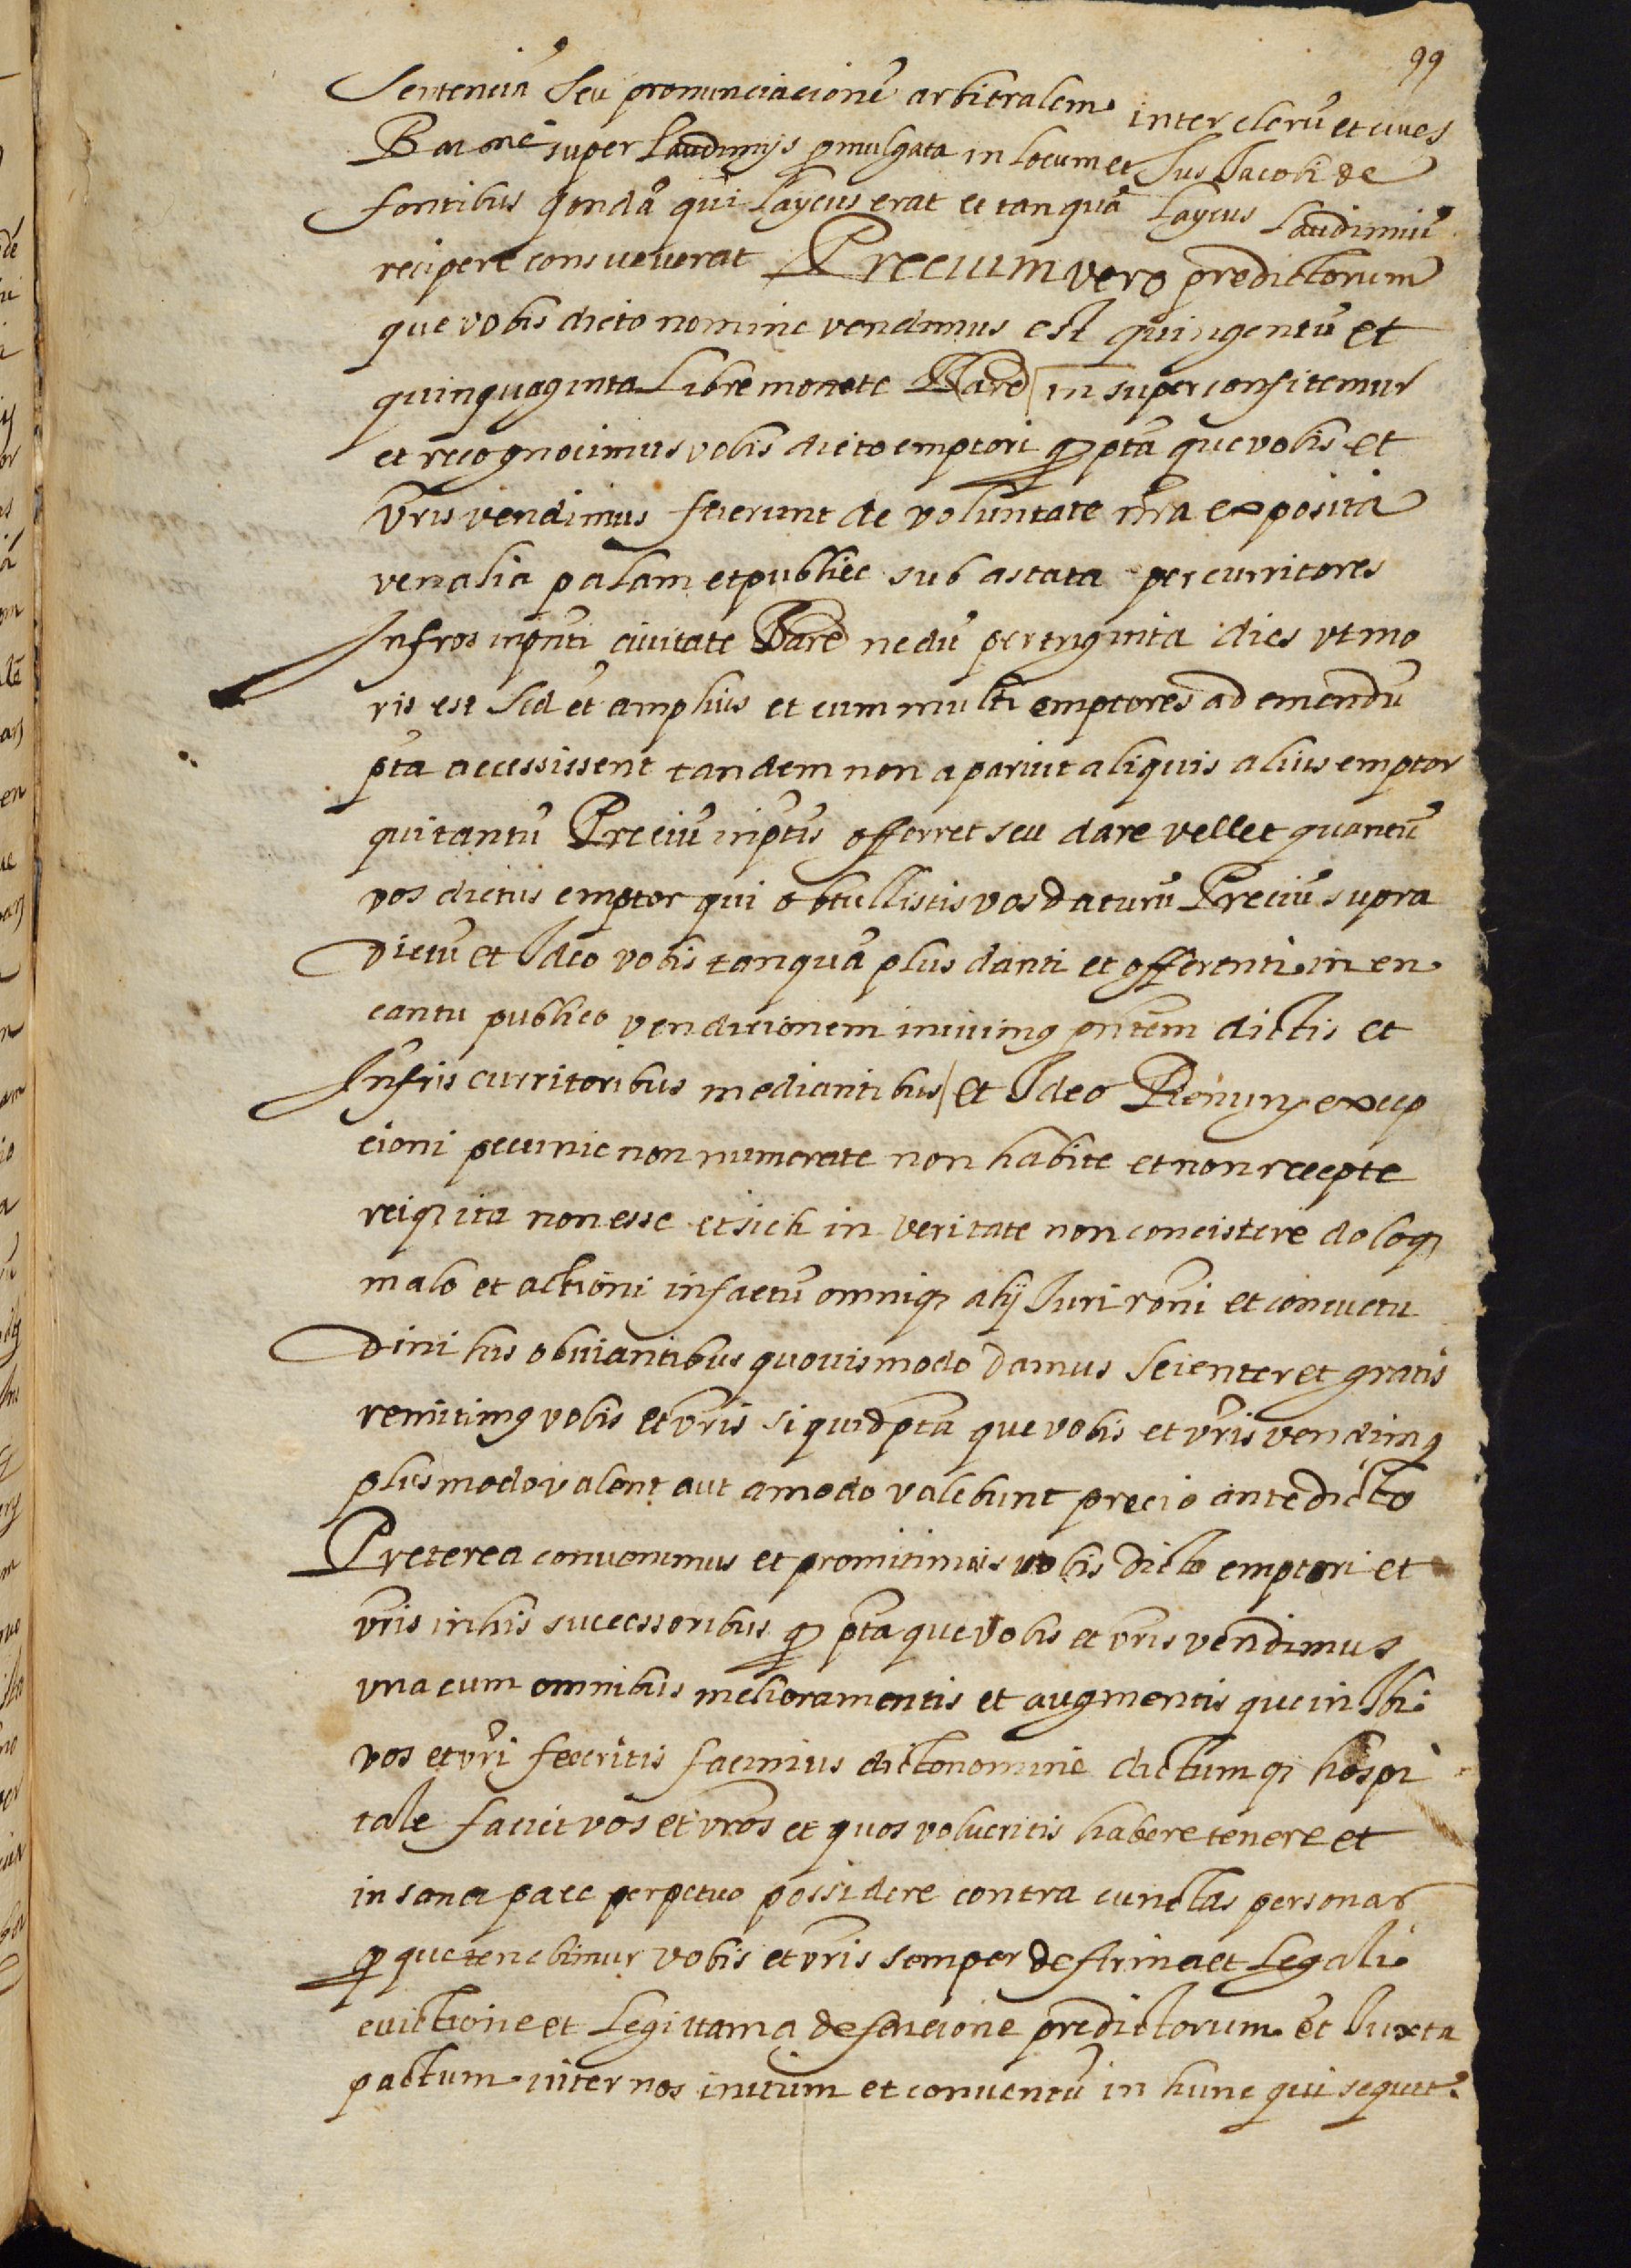 99
Sentenciā Seu pronunciacionē arbitralem inter clerū et ciues
Barone super Laudimijs pmulgata in locum et Ius Iacobi de
fontibus qondā qui Laycus erat et tanquā Laycus Laudimiū
recipere consueuerat Precium vero predictorum
que vobis dicto nomine vendimus est quingentū et
quinquaginta Libre monete Barc̄ in super confitemur
et recognocimus vobis dicto emptori ꝙ pta que vobis et
vr̄is vendimus fuerunt de voluntate nr̄a exposita
venalia palam et publice sub astata per curritores
Infros in pn̄ti ciuitate Barc̄ nedū per triginta dies vt mo
ris est Sed et amplius et cum multi emptores ad emendū
pta accessissent tandem non aparuit aliquis alius emptor
qui tantū Preciū in ptis offerret seu dare vellet quantū
vos dictus emptor qui obtullistis vos daturū Preciū supra
dictū et Ideo vobis tanquā plus danti et offerenti in en
cantu publico vendicionem inimus pn̄tem dictis et
Infris curritoribus mediantibus et Ideo Renunᶜ excep
cioni pecunie non numerate non habite et non recepte
reiqꝫ ita non esse et sich in veritate non concistere doloqꝫ
malo et actioni in factū omniqꝫ alij Iuri rōni et concuetu
dini his obuiantibus quouismodo Damus Scienter et gratis
remitimꝰ vobis et vr̄is si quid pta que vobis et vr̄is vendimꝰ
plus modo valent aut amodo valebunt precio antedicto
Preterea conuenimus et promitimus vobis dicto emptori et
vr̄is in his successoribus ꝙ pta que vobis et vr̄is vendimus
vna cum omnibus melioramentis et augmentis que in Ibi
vos et vr̄i feceritis faciemus dicto nomine dictumqꝫ hospi
tale faciet vos et vr̄os et quos volueritis habere tenere et
in sana pace perpetuo possidere contra cunctas personas
ꝙ que tenebimur vobis et vr̄is semper de firma et Legali
euictione et Legittama defencione predictorum et Iuxta
pactum inter nos initum et conuentū in hunc qui sequit̄